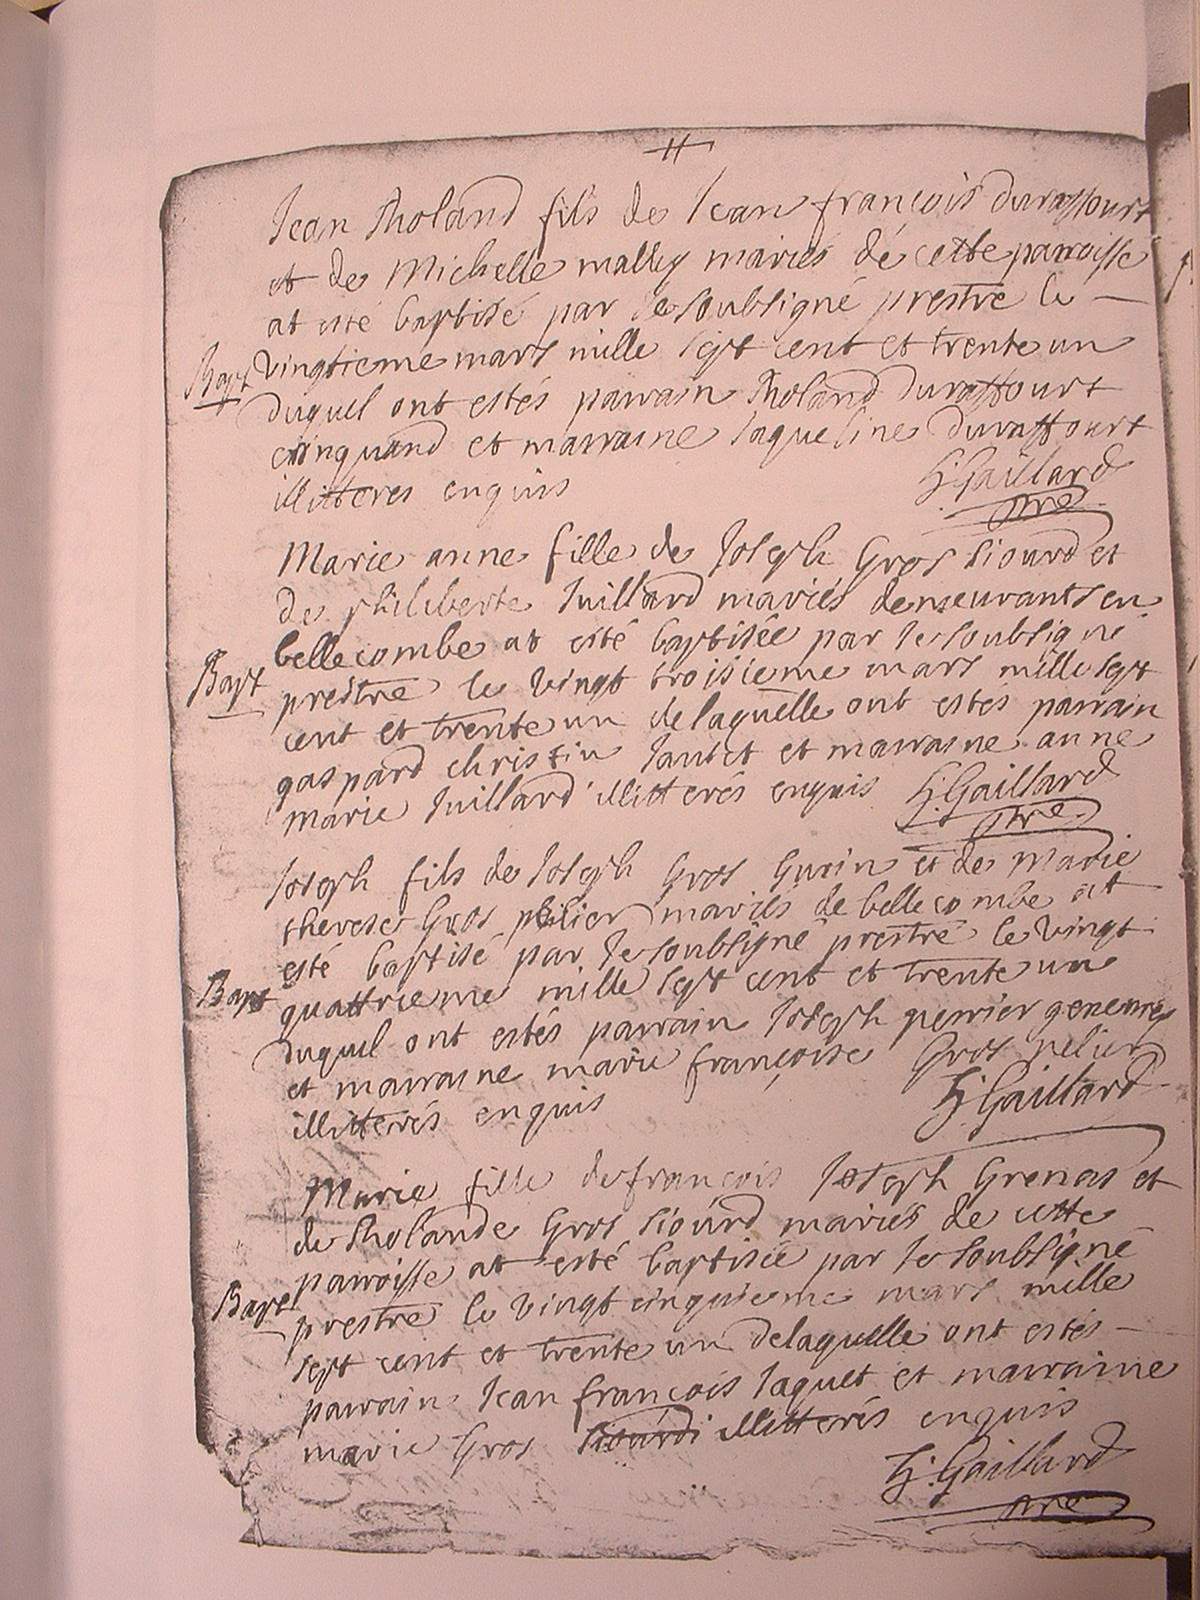 Jean Rholand fils de Jean françois duraffourt
et de Michelle malley mariés de cette parroisse
at esté baptisé par Je soubsigné prestre le
Bapt vingtieme mars mille sept cent et trente un
duquel ont estés parrain Rholand duraffourt
cinquand et marraine Jaqueline duraffourt
illitteres enquis H: Gaillard
ptre
Marie anne fille de Joseph Gros Siourd et
de philiberte Juillard mariés demeurants en
bellecombe at esté baptisée par Je soubsigné
Bapt prestre le vingt troisieme mars mille sept
cent et trente un delaquelle ont estes parrain
gaspard christin Jantet et marraine anne
marie Juillard illitterés enquis H: Gaillard
ptre
Joseph fils de Joseph Gros Gurin et de Marie
therese Gros pelier mariés de bellecombe at
esté baptisé par Je soubsigné prestre le vingt
Bapt quattrieme mille sept cent et trente un
duquel ont estés parrain Joseph perrier
et marraine marie françoise Gros pelier
illitterés enquis H: Gaillard
Marie fille de françois Joseph Grenas et
de Rholande Gros Siourd mariés de cette
parroisse at esté baptisée par Je soubsigné
Bapt prestre le vingt cinquieme mars mille
sept cent et trente un delaquelle ont estés
parrain Jean françois Jaquet et marraine
marie Gros Siourd illitterés enquis
H: Gaillard
ptre